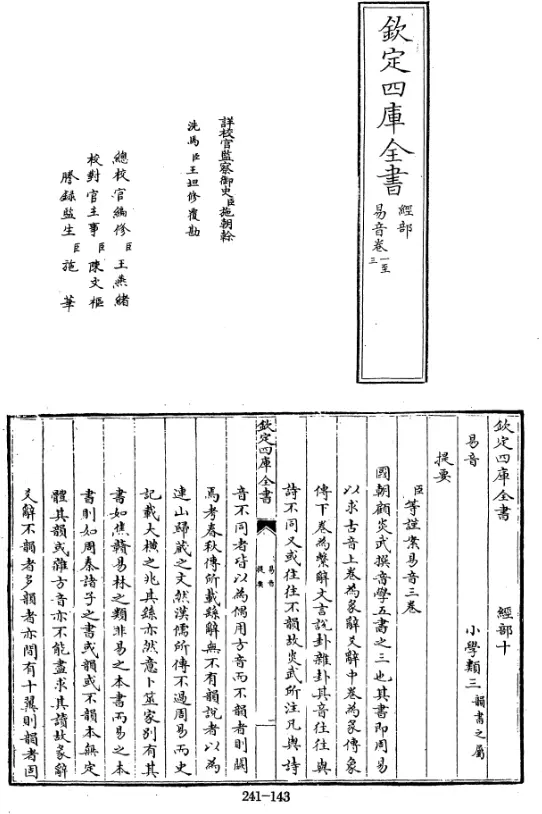 欽定四庫全書
經部
易音卷一至三
詳校官監察御史臣施朝幹
洗馬臣王坦修覆勘
總校官編修臣王燕緒
校對官主事臣陳文樞
謄錄監生臣施華
欽定四庫全書 經部十
易音 小學類三韻書之屬
提要
臣等謹案易音三卷
國朝顧炎武撰音學五書之三也其書即周易
以求古音上卷為彖辭爻辭中卷為彖傳象
傳下卷為繫辭文言說卦雜卦其音往往與
詩不同又或往往不韻故炎武所注凡與詩
欽定四庫全書 易音 提要 一
音不同者皆以為偶用方音而不韻者則闕
焉考春秋傳所載繇辭無不有韻說者以為
連山歸藏之文然漢儒所傳不過周易而史
記載大橫之兆其繇亦然意卜筮家別有其
書如焦贛易林之類非易之本書而易之本
書則如周秦諸子之書或韻或不韻本無定
體其韻或雜方音亦不能盡求其讀故彖辭
爻辭不韻者多韻者亦間有十翼則韻者固
241-143